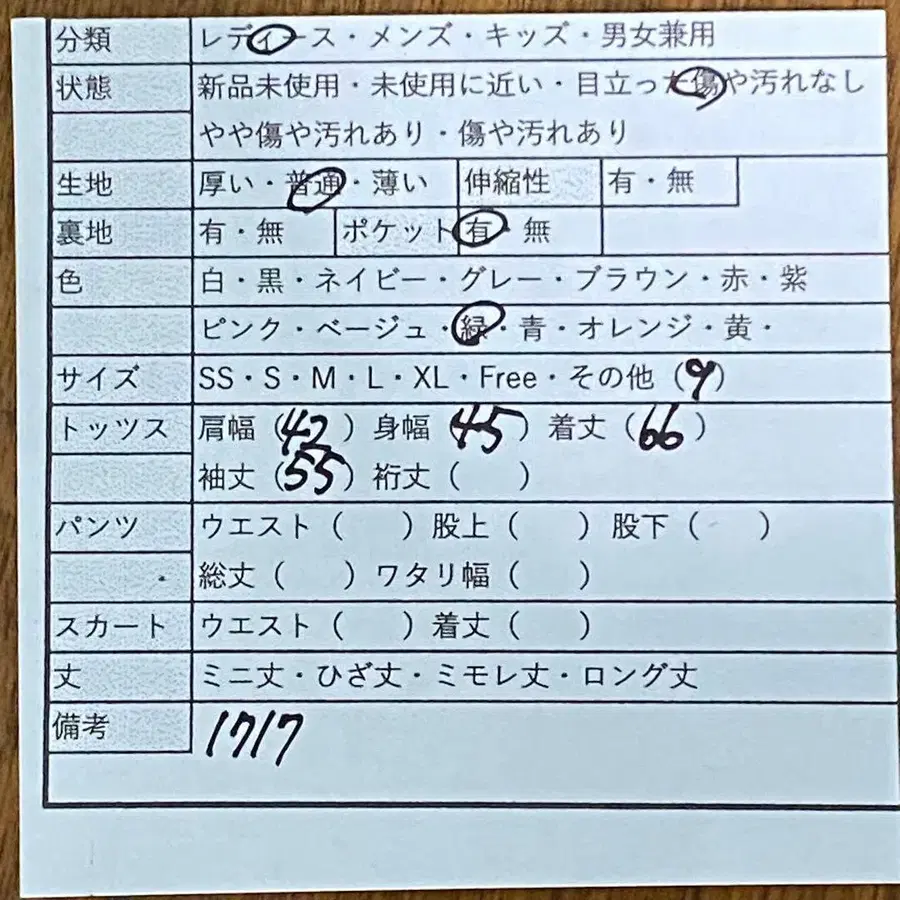 分類 レディース・メンズ・キッズ・男女兼用
状態 新品未使用・未使用に近い・目立った傷や汚れなし
やや傷や汚れあり・傷や汚れあり
生地 厚い・普通・薄い 伸縮性 有・無
裏地 有・無 ポケット 有・無
色 白・黒・ネイビー・グレー・ブラウン・赤・紫
ピンク・ベージュ・緑・青・オレンジ・黄・
サイズ SS・S・M・L・XL・Free・その他（9）
トッツス 肩幅（42）身幅（45）着丈（66）
袖丈（55）裄丈（　）
パンツ ウエスト（　）股上（　）股下（　）
総丈（　）ワタリ幅（　）
スカート ウエスト（　）着丈（　）
丈 ミニ丈・ひざ丈・ミモレ丈・ロング丈
備考 1717